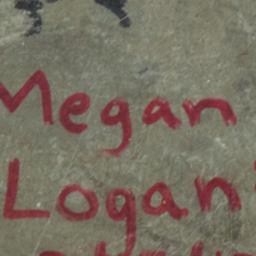 Megan
Logan